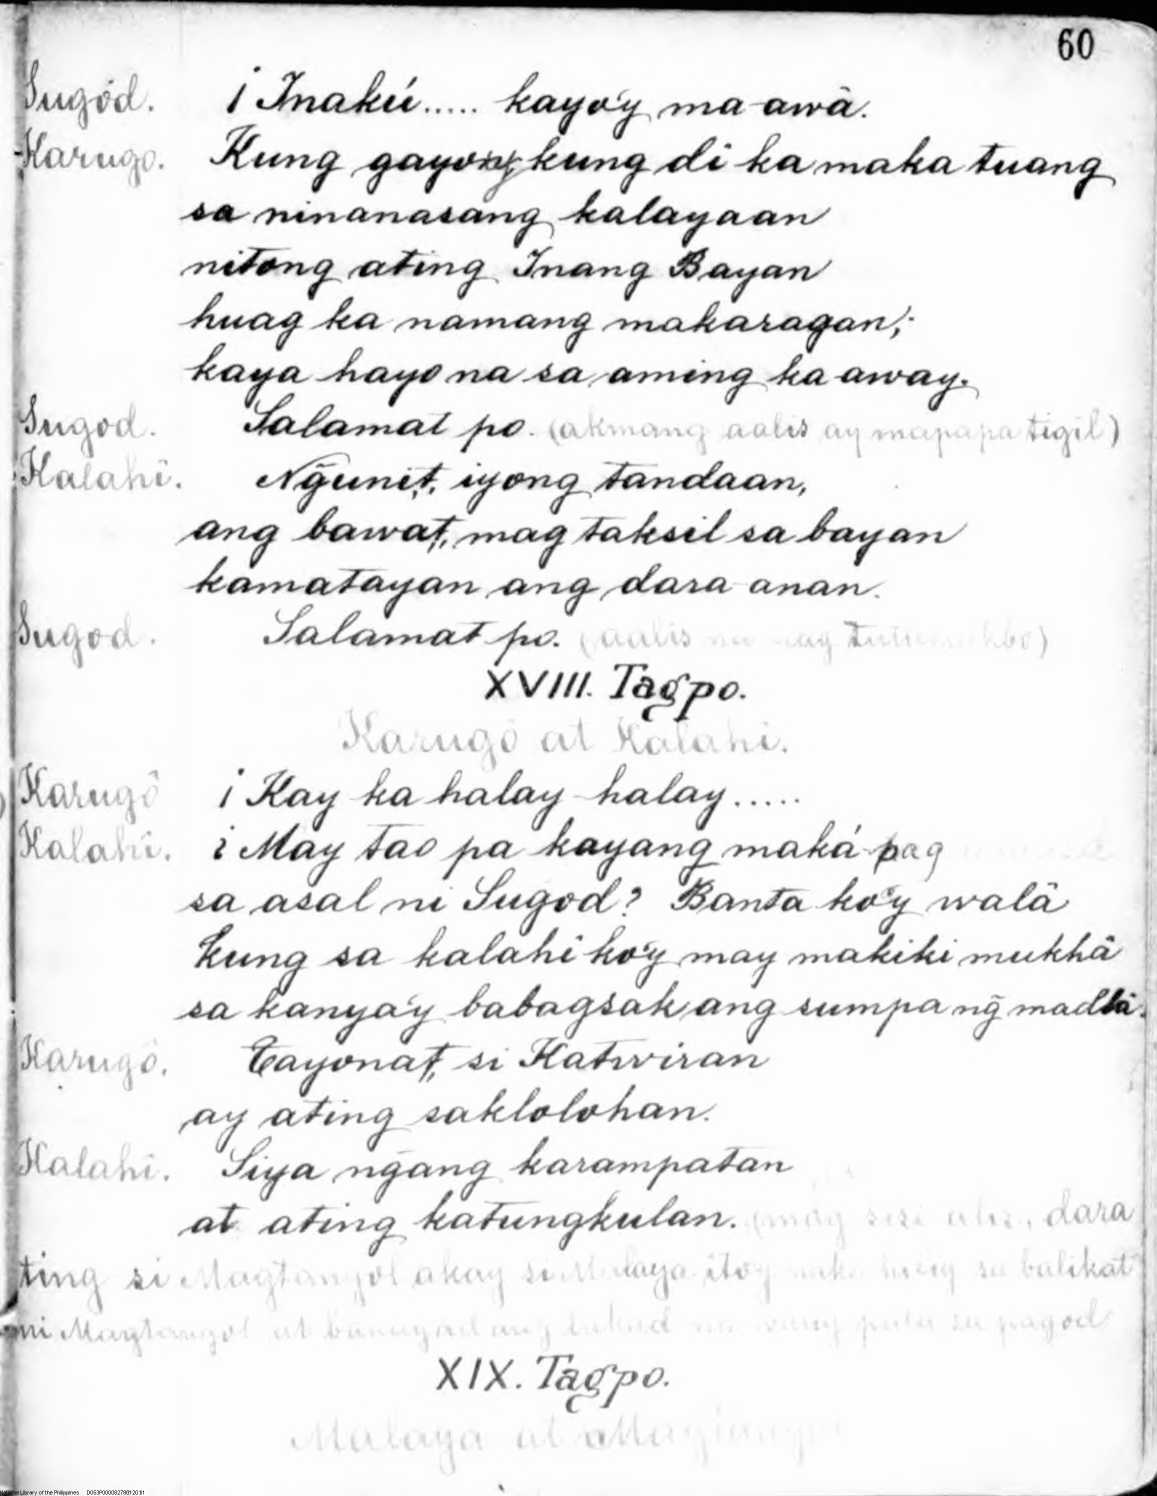 60
Sugód. ¡Inakú..... kayo'y ma-awâ.
Karugo. Kung gayong kung di ka maka tuang
sa ninanasang kalayaan
nitong ating Inang Bayan
huag ka namang makaragan;
kaya hayo na sa aming ka-away.
Sugod. Salamat po. (akmang aalis ay mapapa tigil)
Kalahî. Ng̃unit, iyong tandaan,
ang bawat, mag taksil sa bayan
kamatayan ang dara-anan.
Sugod. Salamat po. (aalis na nag tutumakbo)
XVIII. Tagpo.
Karugô at Kalahi.
Karugô ¡Kay ka halay-halay.....
Kalahi. ¿May tao pa kayang maká-pag
sa asal ni Sugod? Banta ko'y walâ
kung sa kalahî ko'y may makiki mukhâ
sa kanya'y babagsak ang sumpa ng̃ madlâ.
Karugô. Tayonat, si Katwiran
ay ating saklolohan.
Kalahî. Siya ng̃ang karampatan
at ating katungkulan. (mag sisi alis, dara
ting si Magtangol akay si Malaya itoy sa balikat
ni Magtangol at ang lakad na pala sa pagod
XIX. Tagpo.
Malaya at Magtangol